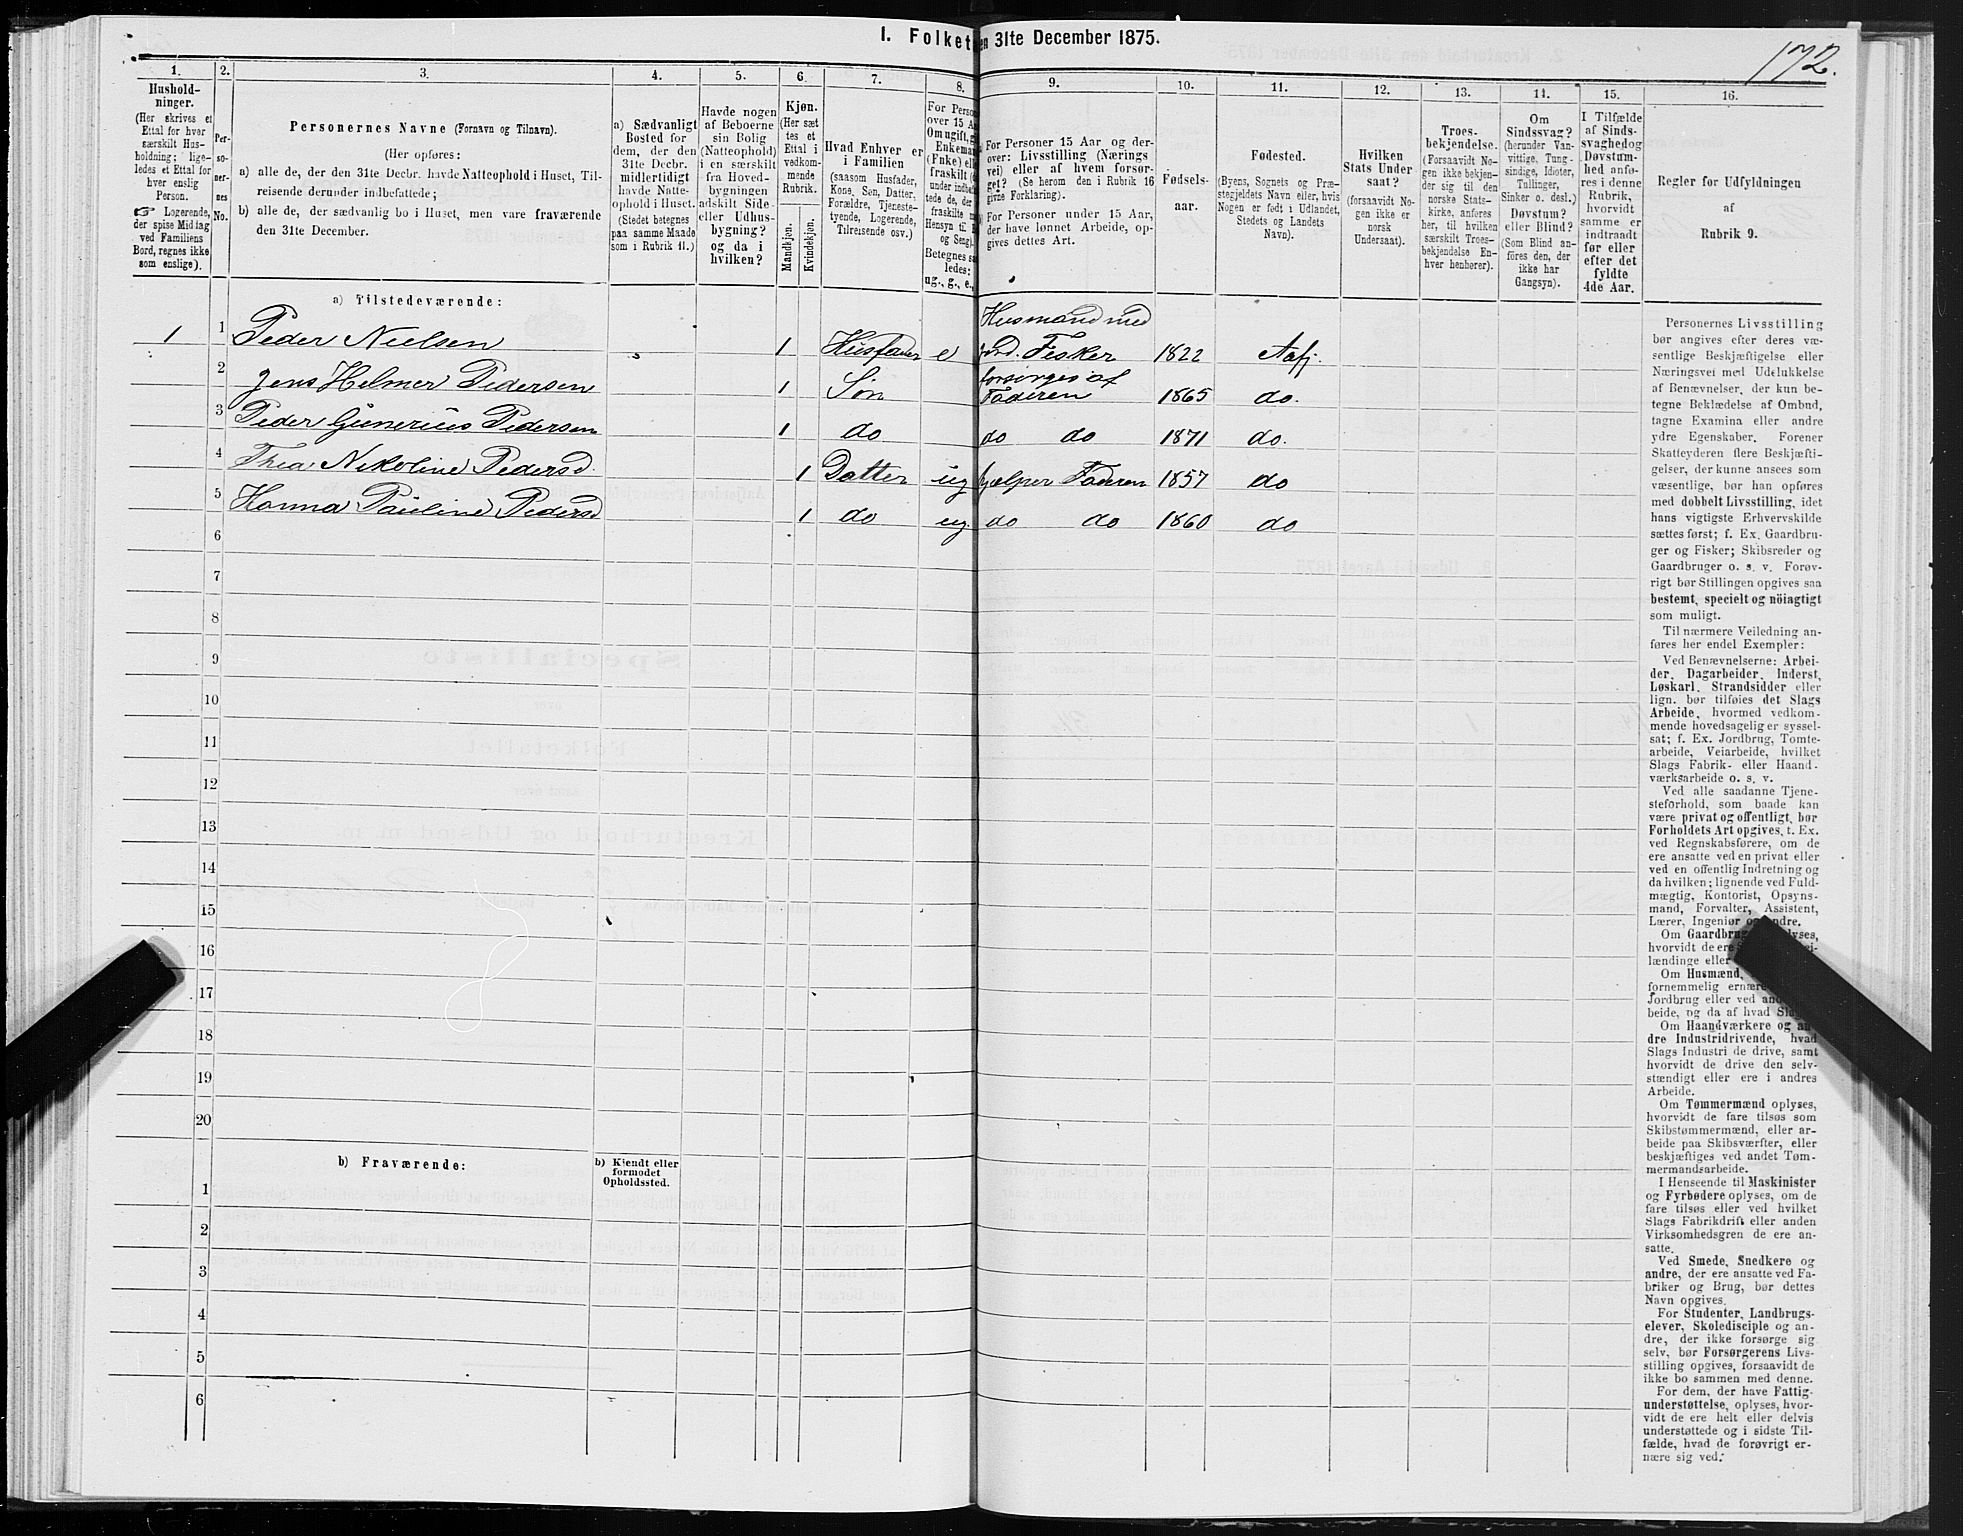 I. Folket
en 31te December 1875.
172.
1.
2.
3.
4.
5.
6.
7.
8.
9.
10.
11.
12.
13.
14.
15.
16.
Hushold-
ninger.
(Her skrives et
Ettal for hver
særskilt Hus-
holdning; lige-
ledes et Ettal for
hver enslig
Person.
☞ Logerende,
der spise Middag
ved Familiens
Bord, regnes ikke
som enslige).
Per-
so-
ner-
nes
No.
Personernes Navne (Fornavn og Tilnavn).
(Her opføres:
a) alle de, der den 31te Decbr. havde Natteophold i Huset, Til-
reisende derunder indbefattede;
b) alle de, der sædvanlig bo i Huset, men vare fraværende
den 31te December.
a) Sædvanligt
Bosted for
dem, der den
31te Decbr.
midlertidigt
havde Natte-
ophold i Huset.
(Stedet betegnes
paa samme Maade
som i Rubrik 11.)
Havde nogen
af Beboerne
sin Bolig
(Natteophold)
i en særskilt
fra Hoved-
bygningen
adskilt Side-
eller Udhus-
bygning?
og da i
hvilken?
Kjøn.
(Her sæt
tes et
Ettal i
vedkom-
mende
Rubrik.
Mandkjøn.
Kvindekjøn.
Hvad Enhver er
i Familien
(saasom Husfader,
Kone, Søn, Datter,
Forældre, Tjeneste-
tyende, Logerende,
Tilreisende osv.)
For Perso
over 15 A
Om ugift, g
Enkeman
(Fnke) ell
fraskilt (
under indbe
tede de, der
fraskilte m
Hensyn til
og Seng).
Betegnes s
ledes:
ug., g., e.,
For Personer 15 Aar og der-
over: Livsstilling (Nærings
vei) eller af hvem forsør-
get? (Se herom den i Rubrik 16
givne Forklaring).
For Personer under 15 Aar,
der have lønnet Arbeide, op-
gives dettes Art.
Fødsels-
aar.
Fødested.
(Byens, Sognets og Præ-
stegjeldets Navn eller, hvis
Nogen er født i Udlandet,
Stedets og Landets
Navn).
Hvilken
Stats Under
saat?
(forsaavidt No-
gen ikke er
norsk
Undersaat).
Troes-
bekjendelse.
(Forsaavidt No-
gen ikke bekjen-
der sig til den
norske Stats-
kirke, anføres
her, til hvilken
særskilt Troes-
bekjendelse En-
hver henhører).
Om
Sindssvag?
(herunder Van-
vittige, Tung-
sindige, Idioter,
Tullinger,
Sinker o. desl.)
Døvstum?
eller Blind?
(Som Blind an-
føres den, der
ikke har
Gangsyn).
I Tilfælde
af Sinds-
svaghed og
Døvstum-
hed anfø-
res i denne
Rubrik,
hvorvidt
samme er
indtraadt
før eller
efter det
fyldte
4de Aar.
Regler for Udfyldningen
af
Rubrik 9.
a) Tilstedeværende:
Husmand med
1 1 Peder Nielsen 1 Husfader e jord. Fisker 1822 Aafj.
forsørges af
2 Jens Helmer Pedersen 1 Søn Faderen 1865 do.
3 Peder Gunerius Pedersen 1 do do do 1871 do.
4 Thea Nikoline Pedersd. 1 Datter ug hjælper Faderen 1857 do
5 Hanna Pauline Pedersd 1 do ug. do do 1860 do
6
7
8
9
10
11
12
13
14
15
16
17
18
19
20
b) Fraværende:
b) Kjendt eller
formodet
Opholdssted.
1
2
3
4
5
6
Personernes Livsstilling
bør angives efter deres væ-
sentlige Beskjæftigelse eller
Næringsvei med Udelukkelse
af Benævnelser, der kun be-
tegne Beklædelse af Ombud,
tagne Examina eller andre
ydre Egenskaber. Forener
Skatteyderen flere Beskjæfti-
gelser, der kunne ansees som
væsentlige, bør han opføres
med dobbelt Livsstilling, idet
hans vigtigste Erhvervskilde
sættes først; f. Ex. Gaardbru-
ger og Fisker; Skibsreder og
Gaardbruger o. s. v. Forøv-
rigt bør Stillingen opgives saa
bestemt, specielt og nöiagtigt
som muligt.
Til nærmere Veiledning an-
føres her endel Exempler:
Ved Benævnelserne: Arbei-
der, Dagarbeider, Inderst,
Løskarl, Strandsidder eller
lign. bør tilføies det Slags
Arbeide, hvormed vedkom-
mende hovedsagelig er syssel-
sat; f. Ex. Jordbrug, Tomte-
arbeide, Veiarbeide, hvilket
Slags Fabrik- eller Haand-
værksarbeide o. s. v.
Ved alle saadanne Tjene-
steforhold, som baade kan
være privat og offentligt, bør
Forholdets Art opgives, t. Ex.
ved Regnskabsførere, om de
ere ansatte ved en privat eller
ved en offentlig Indretning og
da hvilken; lignende ved Fuld-
mægtig, Kontorist, Opsyns-
mand, Forvalter, Assistent,
Lærer, Ingeniør og andre.
Om Gaardbru lyses,
hvorvidt de ere ei-
lændinge eller
Om Husmænd,
fornemmelig ernære
Jordbrug eller ved an
beide, og da af hvad Slag
Om Haandværkere og an-
dre Industridrivende, hvad
Slags Industri de drive, samt
hvorvidt de drive den selv-
stændigt eller ere i andres
Arbeide.
Om Tømmermænd oplyses,
hvorvidt de fare tilsøs som
Skibstømmermænd, eller ar-
beide paa Skibsværfter, eller
beskjæftiges ved andet Tøm-
mermandsarbeide.
I Henseende til Maskinister
og Fyrbødere oplyses, om de
fare tilsøs eller ved hvilket
Slags Fabrikdrift eller anden
Virksomhedsgren de ere an-
satte.
Ved Smede, Snedkere og
andre, der ere ansatte ved Fa-
briker og Brug, bør dettes
Navn opgives.
For Studenter, Landbrugs-
elever, Skoledisciple og an-
dre, der ikke forsørge sig
selv, bør Forsørgerens Livs-
stilling opgives, forsaavidt de
ikke bo sammen med denne.
For dem, der have Fattig-
understøttelse, oplyses, hvor-
vidt de ere helt eller delvis
understøttede og i sidste Til-
fælde, hvad de forøvrigt er-
nære sig ved.